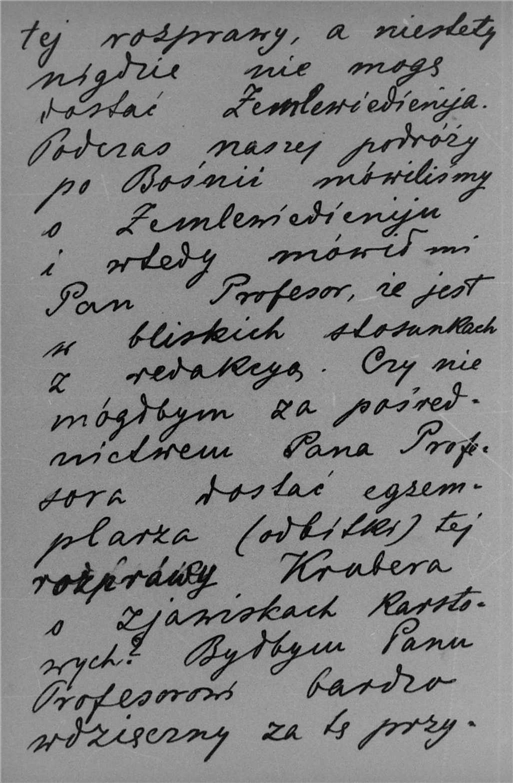 tej rozprawy, a niestety
nigdzie nie mogę
dostać Zemlewiedienija.
Podczas naszej podróży
po Bośnii mówiliśmy
o Zemlewiedieniju
i wtedy mówił mi
Pan Profesor, że jest
w bliskich stosunkach
z redakcyą. Czy nie
mógłbym za pośred-
nictwem Pana Profe-
sora dostać egzem-
plarza (odbitki) tej
rozprawy Krubera
o zjawiskach karsto-
wych? Byłbym Panu
Profesorowi bardzo
wdzięczny za tę przy-